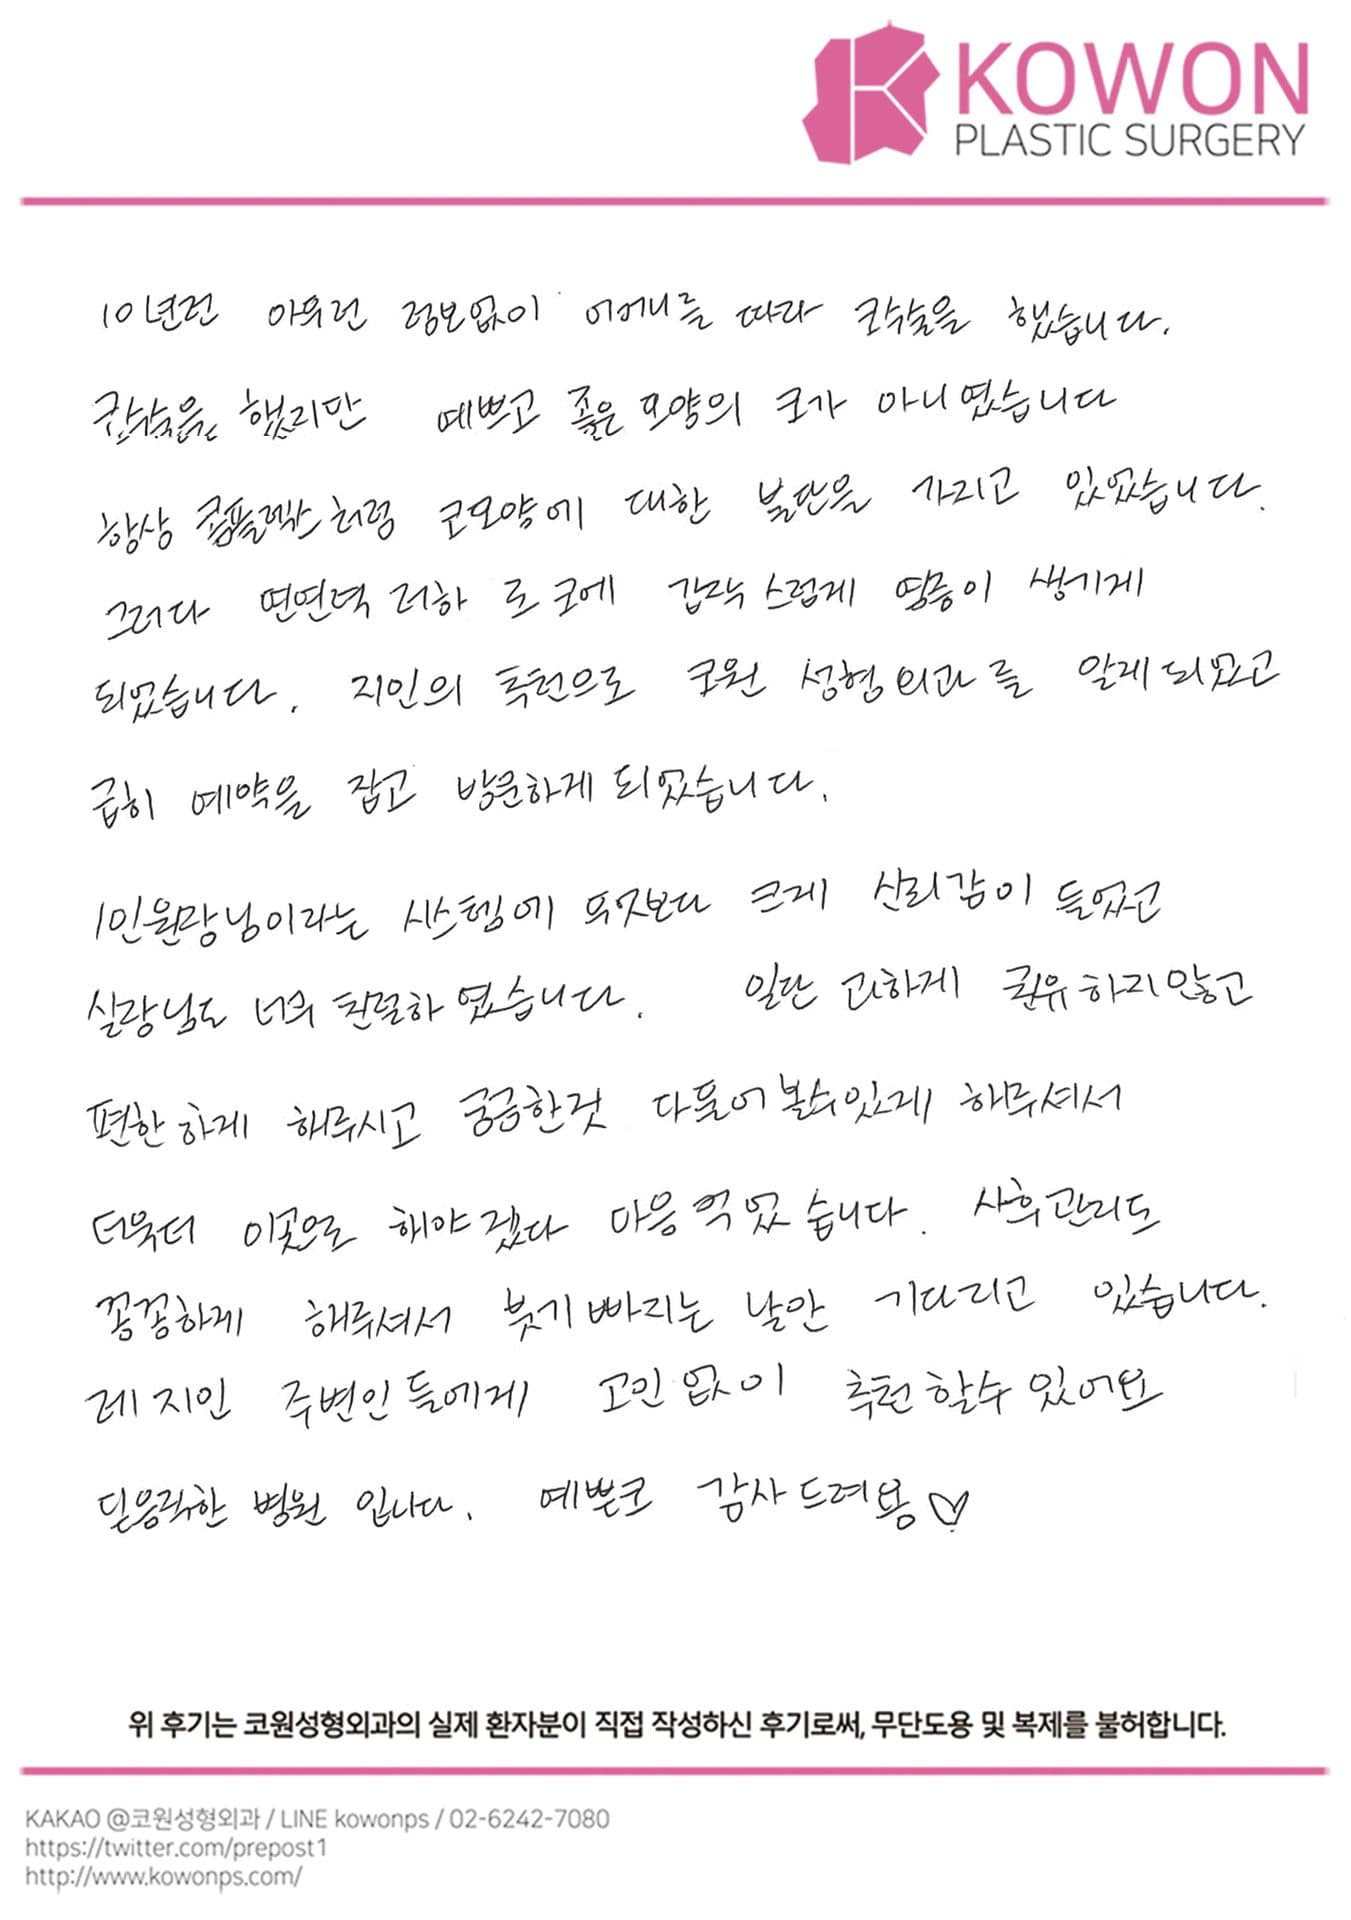 KOWON
PLASTIC SURGERY
10년전 아무런 정보없이 어머니를 따라 코수술을 했습니다.
코수술을 했지만 예쁘고 좋은 모양의 코가 아니였습니다
항상 콤플렉스처럼 코모양에 대한 불만을 가지고 있었습니다.
그러다 면연력 저하로 코에 갑작스럽게 염증이 생기게
되었습니다. 지인의 추천으로 코원 성형외과를 알게되었고
급히 예약을 잡고 방문하게 되었습니다.
1인원장님이라는 시스템에 무엇보다 크게 신뢰감이 들었고
실장님도 너무 친절하였습니다. 일단 과하게 권유하지않고
편한하게 해주시고 궁금한것 다물어볼수있게 해주셔서
더욱더 이곳으로 해야겠다 마음먹었습니다. 사후관리도
꽁꽁하게 해주셔서 붓기빠지는 날만 기다리고 있습니다.
제 지인 주변인들에게 고민없이 추천할수있어요
믿음직한 병원 입니다. 예쁜코 감사드려용♡
위 후기는 코원성형외과의 실제 환자분이 직접 작성하신 후기로써, 무단도용 및 복제를 불허합니다.
KAKAO @코원성형외과 / LINE kowonps / 02-6242-7080
https://twitter.com/prepost1
http://www.kowonps.com/